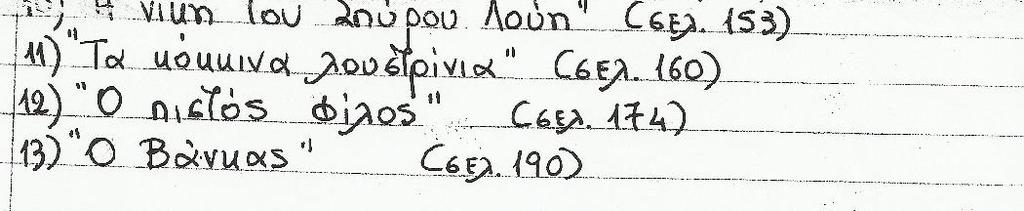 10) "Η νίκη του Σπύρου Λούη" (σελ. 153)
11) "Τα κόκκινα λουστρίνια" (σελ. 160)
12) "Ο πιστός φίλος" (σελ. 174)
13) "Ο Βάνκας" (σελ. 190)